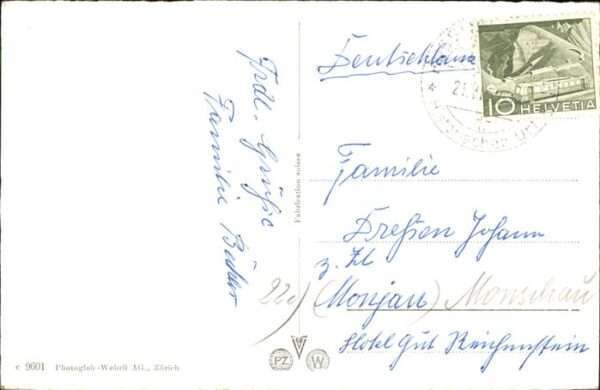 Frdl. Grüße
Familie Bäder
220
c 9601 Photoglob-Wehrli AG., Zürich
Fabrication suisse
PZ W
Deutschland
10 HELVETIA
Familie
Dreßen Johann
z. Zt
(Monjau) Monschau
Hotel Gut Reichenstein